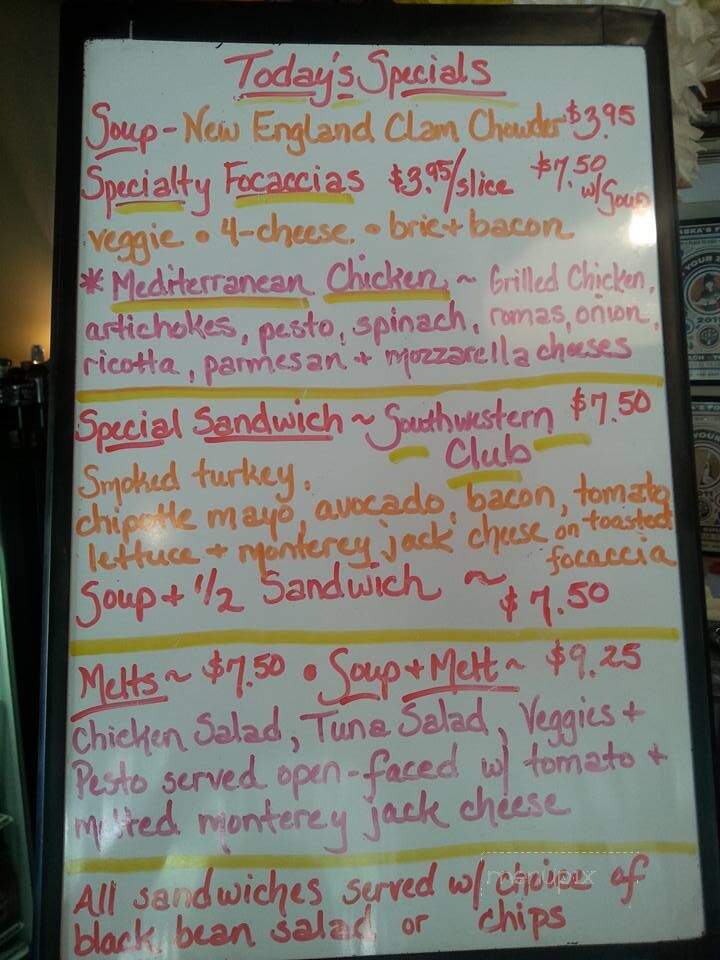 Today's Specials
Soup - New England Clam Chowder $3.95
Specialty Focaccias $3.95/slice $7.50 w/Soup
veggie • 4-cheese • brie + bacon
* Mediterranean Chicken ~ Grilled Chicken,
artichokes, pesto, spinach, romas, onion,
ricotta, parmesan + mozzarella cheeses
Special Sandwich ~ Southwestern $7.50
Club
Smoked turkey,
chipotle mayo, avocado, bacon, tomato
lettuce + monterey jack cheese on toasted
focaccia
Soup + 1/2 Sandwich ~ $7.50
Melts ~ $7.50 • Soup + Melt ~ $9.25
Chicken Salad, Tuna Salad, Veggies +
Pesto served open-faced w/ tomato +
melted monterey jack cheese
All sandwiches served w/ choice of
black bean salad or chips
menupix
YOUR
201
YOUR